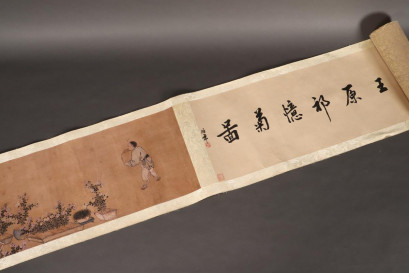 王原祁憶菊圖